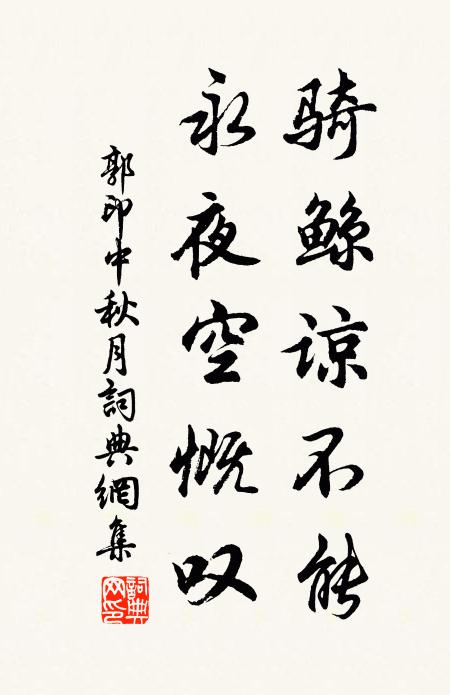 骑鲸谅不能
永夜空慨叹
郭印中秋月詞典網集
詞典网